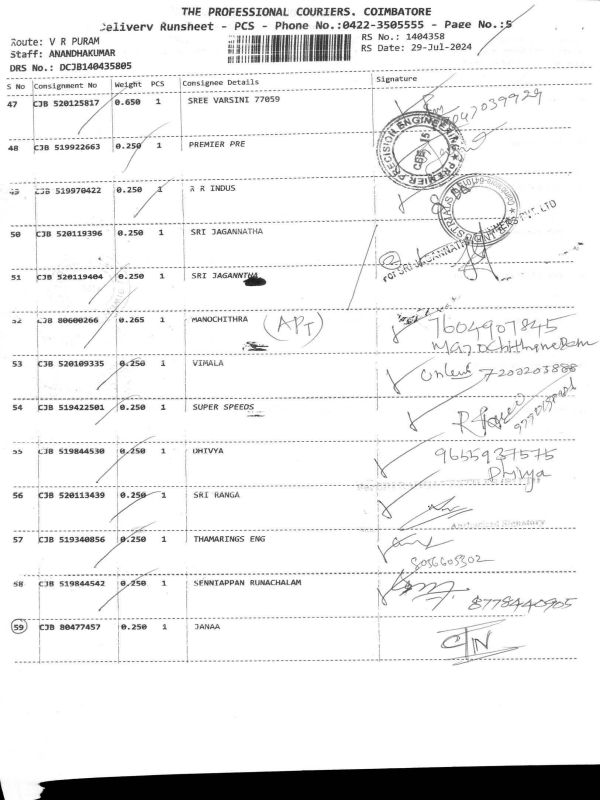 THE PROFESSIONAL COURIERS. COIMBATORE
Delivery Runsheet - PCS - Phone No.:0422-3505555 - Page No.:5
Route: V R PURAM
RS No.: 1404358
Staff: ANANDHAKUMAR
RS Date: 29-Jul-2024
DRS No.: DCJB140435805
S No Consignment No Weight PCS Consignee Details Signature
47 CJB 520125817 0.650 1 SREE VARSINI 77059
48 CJB 519922663 0.250 1 PREMIER PRE
PREMIER PRECISION ENGINEERING
49 CJB 519970422 0.250 1 R R INDUS
50 CJB 520119396 0.250 1 SRI JAGANNATHA
51 CJB 520119404 0.250 1 SRI JAGANNTHA
52 CJB 80600266 0.265 1 MANOCHITHRA (APT) 7604907845
53 CJB 520109335 0.250 1 VIMALA 7200203888
54 CJB 519422501 0.250 1 SUPER SPEEDS
55 CJB 519844530 0.250 1 DHIVYA 9655937575
Dhivya
56 CJB 520113439 0.250 1 SRI RANGA
Authorised Signatory
57 CJB 519340856 0.250 1 THAMARINGS ENG
8056605302
58 CJB 519844542 0.250 1 SENNIAPPAN RUNACHALAM
8778440905
59 CJB 80477457 0.250 1 JANAA